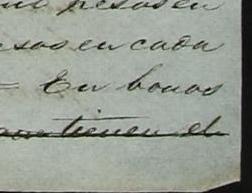 mil pesos en
pesos en cada
= En bonos
que tienen el